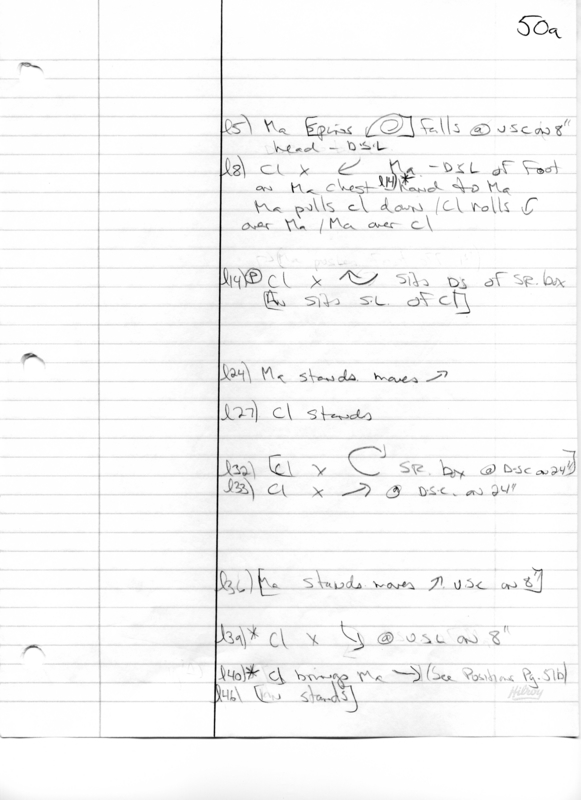 50a
l5) Ma [spins] falls @ USC on 8"
head - DSL
l8) Cl x ↙ Ma - DSL of Foot
on Ma chest l14)* hand to Ma
Ma pulls Cl down / Cl rolls
over Ma / Ma over Cl
l14) Ⓟ Cl x sits DS of SR. box
[An sits S.L. of Cl]
l24) Ma stands moves ↗
l27) Cl stands
l32) [Cl x SR. box @ DSC on 24"]
l33) Cl x → @ DSC. on 24"
l36) [Ma stands moves ↗ USC on 8"]
l39)* Cl x @ USL on 8"
l40)* Cl brings Ma → (See Positions Pg. 51b)
l46) [An stands]
Hilroy